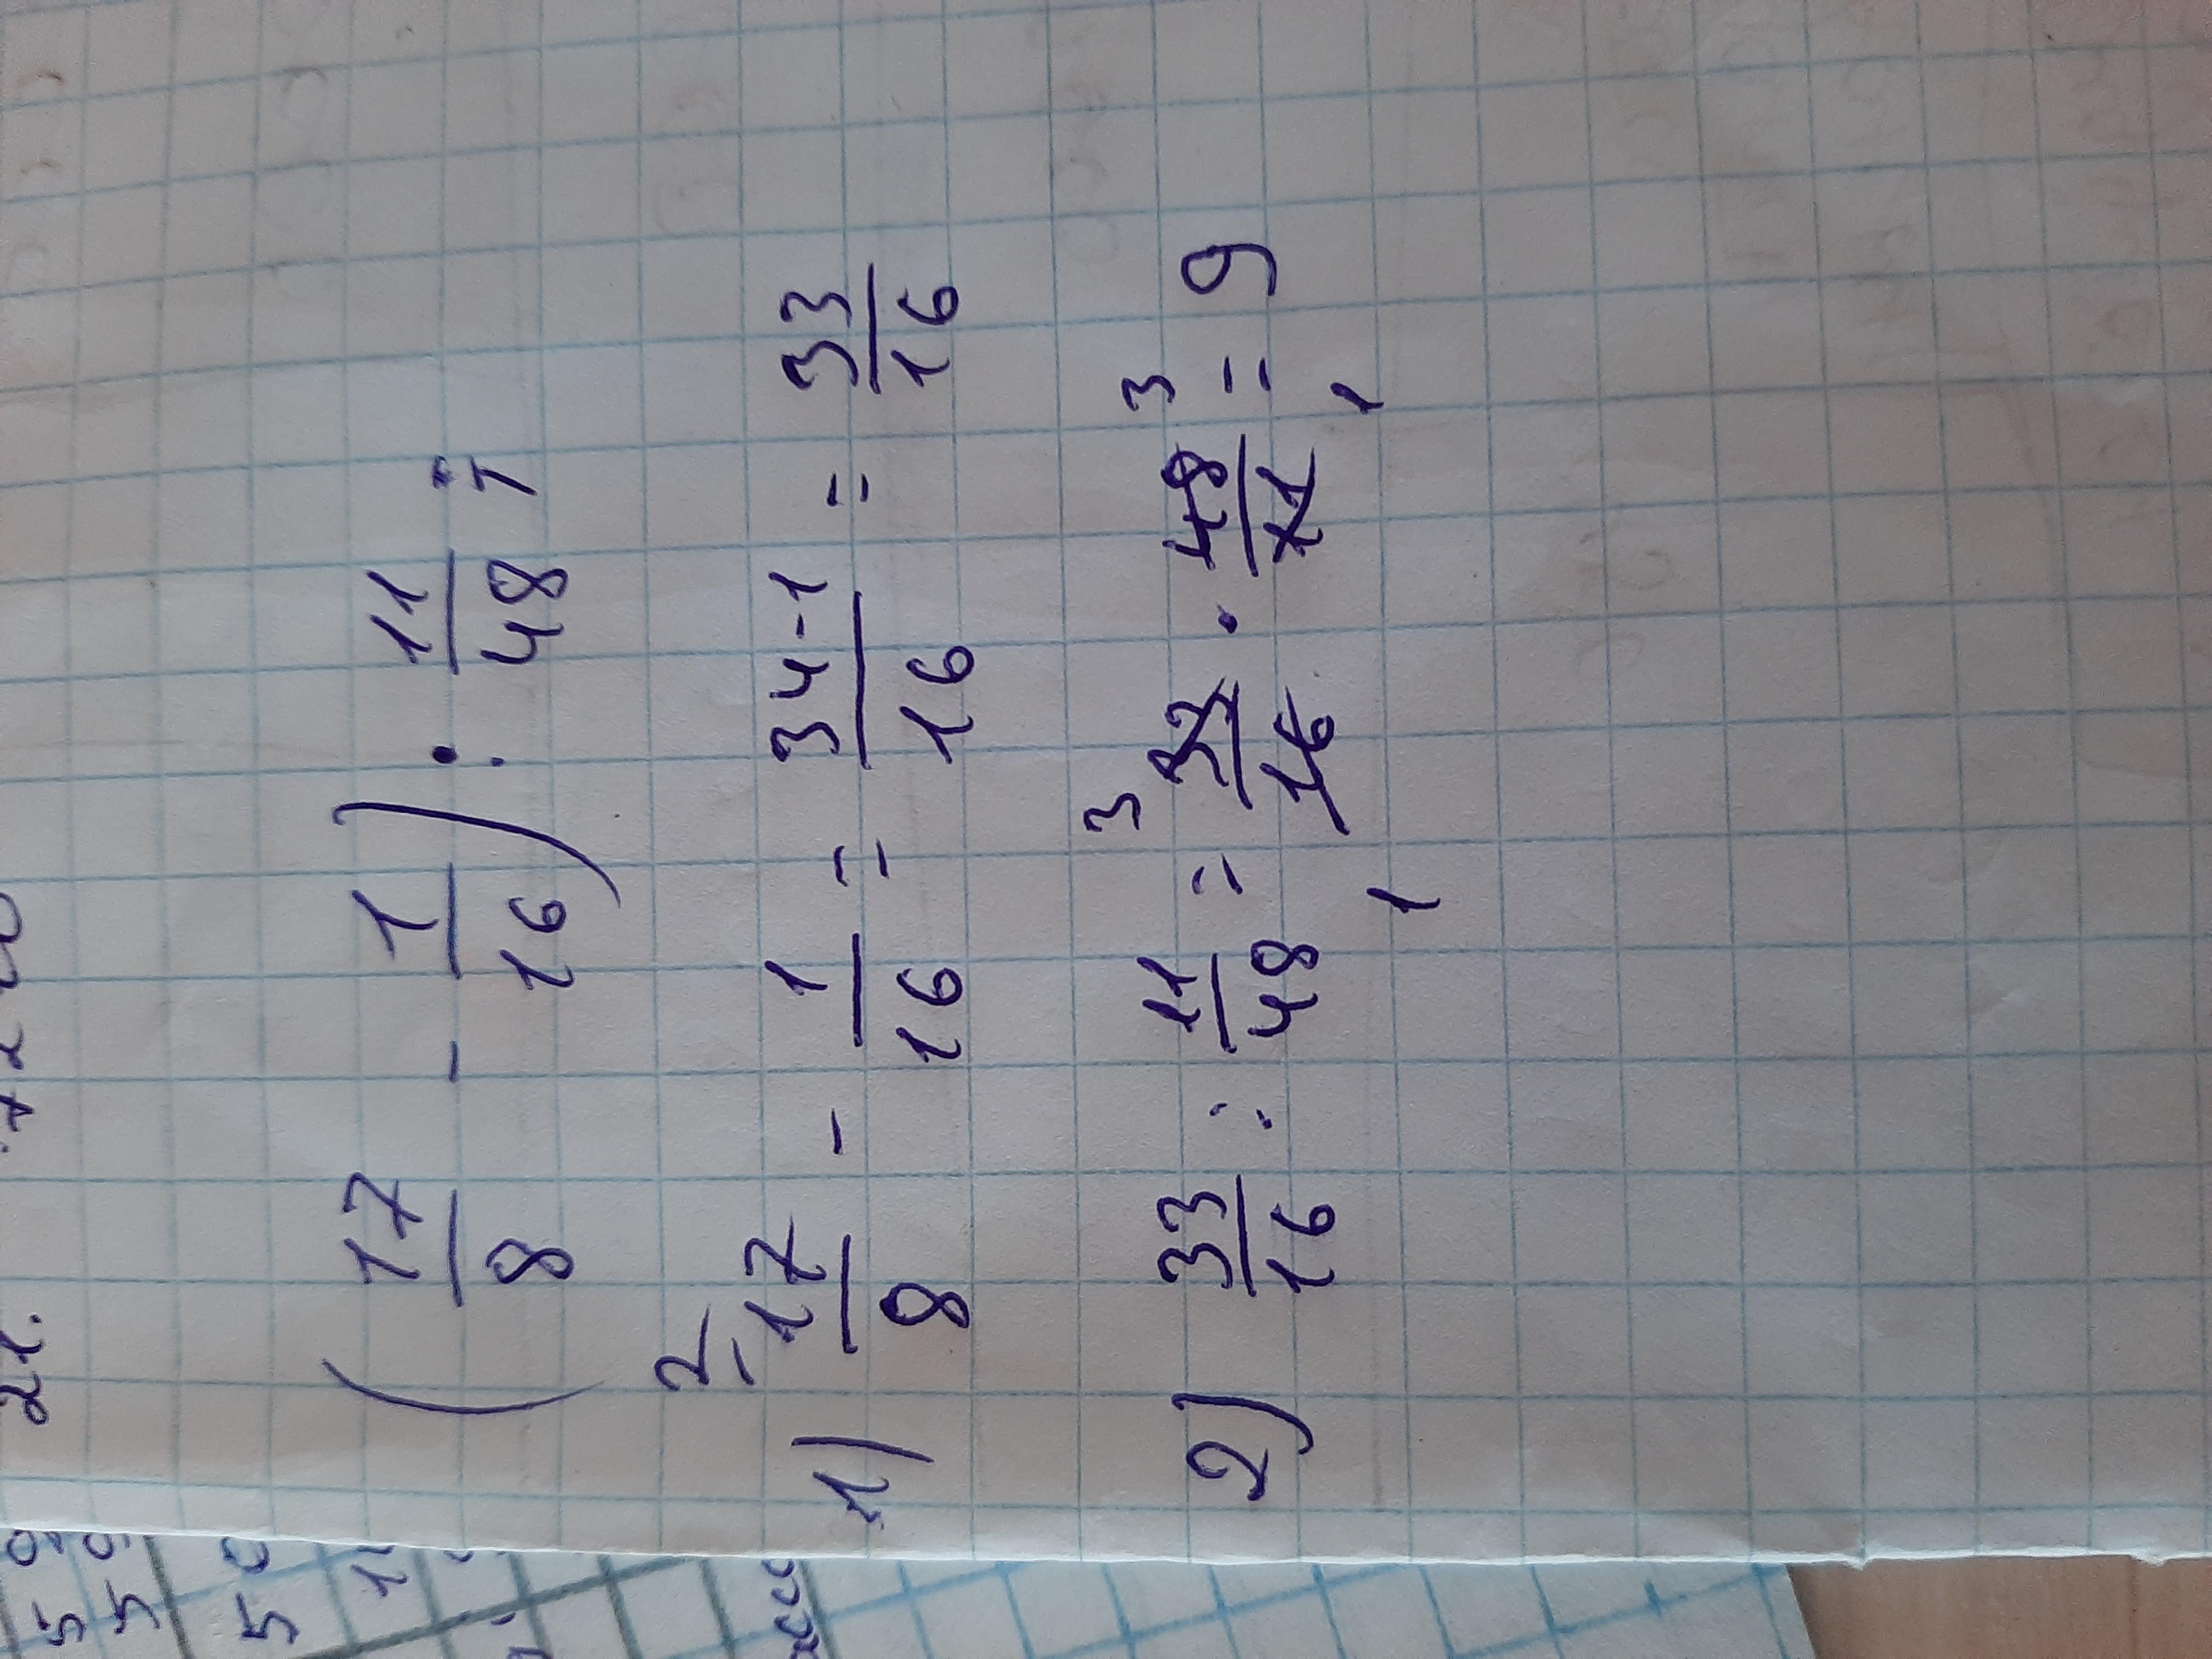 21.
(17/8 - 1/16) : 11/48 ;
1) 2/ 17/8 - 1/16 = 34-1/16 = 33/16
2) 33/16 : 11/48 = 3 33/16 1 · 3 48/11 1 = 9